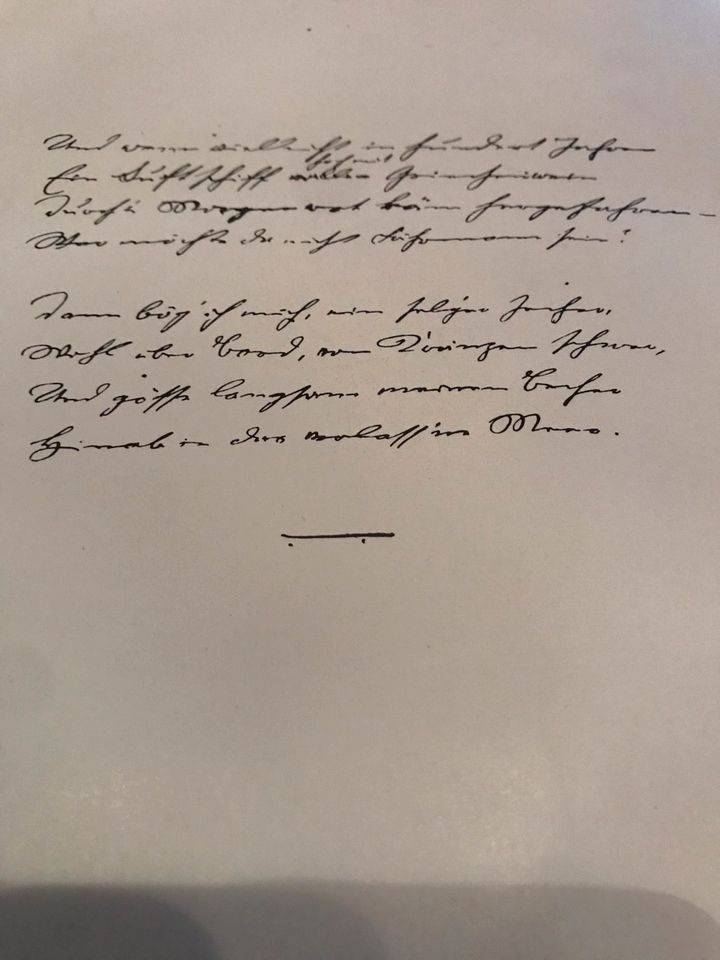 Und wenn vielleicht in hundert Jahren
Ein Luftschiff hoch mit Griechenwein
Durch's Morgenrot käm hergefahren –
Wer möchte da nicht Fährmann sein?
Dann bög' ich mich, ein sel'ger Zecher,
Wohl über Bord, von Kränzen schwer,
Und gösse langsam meinen Becher
Hinab in das verlass'ne Meer.